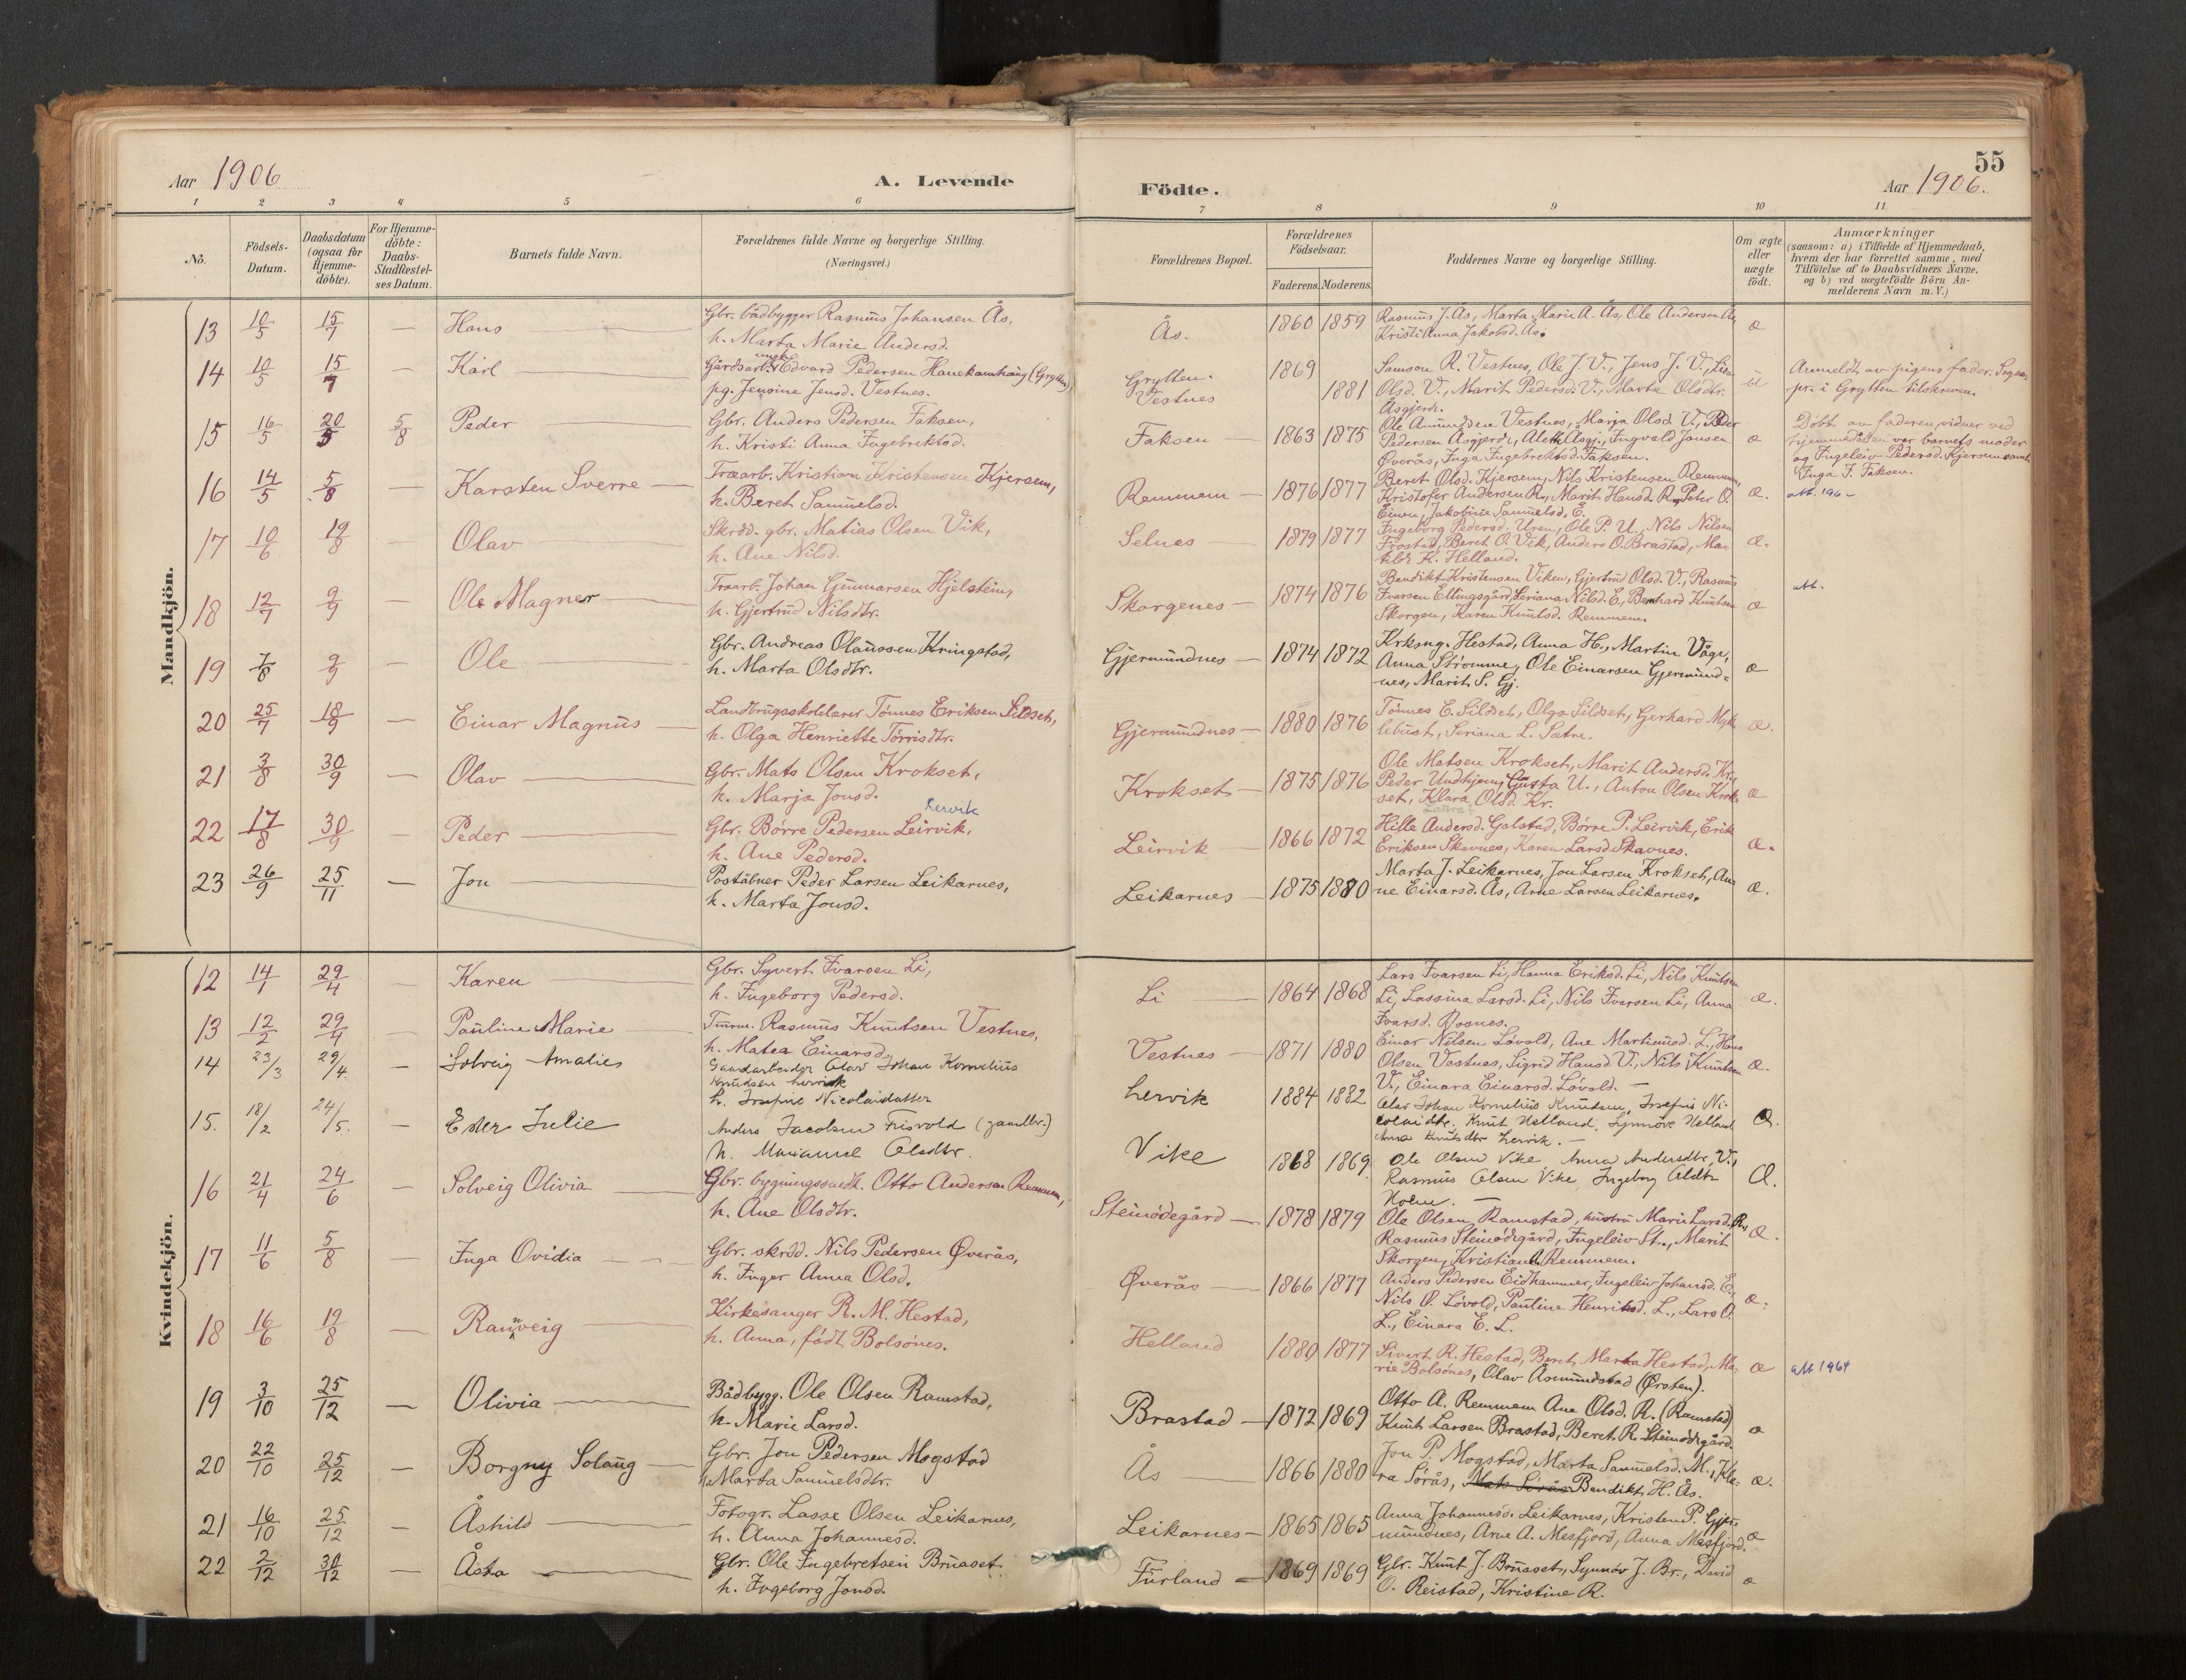 55
Aar 1906
A. Levende
Födte.
Aar 1906.
1 2 3 4 5 6 7 8 9 10 11
No.
Födsels-Datum.
Daabsdatum (ogsaa for Hjemme-döbte).
For Hjemme-döbte: Daabs-Stadfæstel-ses Datum.
Barnets fulde Navn.
Forældrenes fulde Navne og borgerlige Stilling.
(Næringsvei.)
Forældrenes Bopæl.
Forældrenes Födselsaar.
Faderens. Moderens.
Faddernes Navne og borgerlige Stilling.
Om ægte eller uægte födt.
Anmærkninger
(saasom: a) i Tilfælde af Hjemmedaab,
hvem der har forrettet samme, med
Tilföielse af to Daabsvidners Navne.
og b) ved uægtefödte Börn An-
melderens Navn m.V.)
Mandkjön.
13 10/5 15/7 — Hans
Gbr. bådbygger Rasmus Johansen Ås,
h. Marta Marie Andersd.
Ås. 1860 1859
Rasmus J. Ås, Marta Marie A. Ås, Ole Andersen Ås,
Kristi Anna Jakobsd. Ås.
æ
14 10/5 15/7 — Karl
Gårdsarb. ungk. Edvard Pedersen Hanekamhaug (Grytten)
pg. Jensine Jensd. Vestnes.
Grytten.
Vestnes
1869
1881
Samson R. Vestnes, Ole J. V., Jens J. V., Lisa
Olsd. V., Marit Pedersd. V., Marte Olsdtr.
Åsgjerd.
u
Anmeldt av pigens fader. Sogne-
pr. i Grytten tilskreven.
15 16/5 20/5 5/8 Peder
Gbr. Anders Pedersen Faksen,
h. Kristi Anna Ingebrektsd.
Faksen — 1863 1875
Ole Amundsen Vestnes, Marja Olsd. V., Peder
Pedersen Åsgjerd, Aleth. Åsgj., Ingvald Jansen
Øverås, Inga Ingebrektsd. Faksen.
æ
Döbt av faderen, vidner ved
hjemmedåben var barnets moder
og Ingeleiv Pedersd. Kjersem samt
Inga I. Faksen.
16 14/5 5/8 — Karsten Sverre
Træarb. Kristian Kristensen Kjersem,
h. Beret Samuelsd.
Remmem — 1876 1877
Beret Olsd. Kjersem, Nils Kristensen Remmem,
Kristofer Andersen R., Marit Hansd. R., Peter O.
Einen, Jakobine Samuelsd. E.
æ.
att. 196-
17 10/6 19/8 — Olav
Skrdd. gbr. Matias Olsen Vik,
h. Ane Nilsd.
Selnes — 1879 1877
Ingeborg Pedersd. Uren, Ole P. U., Nils Nilsen
Frostad, Beret O. Vik, Anders O. Brastad, Ma-
tilde K. Helland.
æ.
18 12/7 9/9 — Ole Magner
Træarb. Johan Gunnarsen Hjelstein,
h. Gjertrud Nilsdtr.
Skorgenes — 1874 1876
Bendikt Kristensen Viken, Gjertrud Olsd. V., Rasmus
Ivarsen Ellingsgård, Seriana Nilsd. E., Bernhard Knutsen
Skorgen, Karen Knutsd. Remmem.
æ
att.
19 7/8 9/9 — Ole
Gbr. Andreas Olaussen Kringstad,
h. Marta Olsdtr.
Gjermundnes — 1874 1872
Krksng. Hestad, Anna H., Martin Våge,
Anna Strömme, Ole Einarsen Gjermund-
nes, Marit S. Gj.
æ
20 25/7 18/9 — Einar Magnus
Landbrugsskolelærer Tönnes Eriksen Sildset,
h. Olga Henriette Törrisdtr.
Gjermundnes — 1880 1876
Tönnes E. Sildset, Olga Sildset, Gerhard Myk-
lebust, Seriana L. Sætre.
æ.
21 3/8 30/9 — Olav
Gbr. Mats Olsen Krokset,
h. Marja Jonsd.
Krokset — 1875 1876
Ole Matsen Krokset, Marit Andersd. Kr.,
Peder Undhjem, Gusta U., Anton Olsen Krok-
set, Klara Olsd. Kr.
Laura?
æ
22 17/8 30/9 — Peder
Lervik
Gbr. Börre Pedersen Leirvik,
h. Ane Pedersd.
Leirvik — 1866 1872
Hille Andersd. Galstad, Börre P. Leirvik, Erik
Eriksen Skavnes, Karen Larsd. Skavnes.
æ.
23 26/9 25/11 — Jon
Poståbner Peder Larsen Leikarnes,
h. Marta Jonsd.
Leikarnes — 1875 1880
Marta J. Leikarnes, Jon Larsen Krokset, An-
ne Einarsd. Ås, Arne Larsen Leikarnes.
æ.
Kvindekjön.
12 14/1 29/4 — Karen
Gbr. Syvert Ivarsen Li,
h. Ingeborg Pedersd.
Li — 1864 1868
Lars Ivarsen Li, Hanna Eriksd. Li, Nils Knutsen
Li, Lassina Larsd. Li, Nils Ivarsen Li, Anna
Ivarsd.
æ.
13 12/2 29/4 — Pauline Marie
Tmrm. Rasmus Knutsen Vestnes,
h. Matea Einarsd.
Vestnes — 1871 1880
Einar Nilsen Lövold, Ane Martinusd. L., Hans
Olsen Vestnes, Sigrid Hansd. V., Nils Knutsen
V., Einara Einarsd. Lövold. —
æ.
14 23/3 29/4. — Solveig Amalie
Gaardarbeider Olav Johan Kornelius
Knudsen Lervik
h. Josefine Nicolaidatter
Lervik 1884 1882
Olav Johan Kornelius Knudsen, Josefine Ni-
colaidtr. Knut Helland, Synnöve Helland
Anna Knutsdtr Lervik. —
Æ.
15. 18/2 24/5. — Ester Julie
Anders Jacobsen Frisvold (gaardbr.)
h. Marianne Olsdtr.
Vike 1868 1869
Ole Olsen Vike Anna Andersdtr. V.,
Rasmus Olsen Vike, Ingeborg Oldtr
Holm. —
Æ.
16 21/4 24/6 — Solveig Olivia
Gbr. bygningssnedk. Otto Andersen Remmem,
h. Ane Olsdtr.
Steinödegård — 1878 1879
Ole Olsen Ramstad, hustru Marie Larsd. R.,
Rasmus Steinödegård, Ingeleiv St., Marit
Skorgen, Kristian A. Remmem.
æ.
17 11/6 5/8 — Inga Ovidia
Gbr. skrdd. Nils Pedersen Øverås,
h. Inger Anna Olsd.
Øverås — 1866 1877
Anders Pedersen Eidhammer, Ingeleiv Johansd. E.,
Nils O. Lövold, Pauline Henriksd. L., Lars O.
L., Einara E. L.
æ.
18 16/6 19/8 — Rannveig
Kirkesanger R. M. Hestad,
h. Anna, född Bolsönes.
Helland 1880 1877
Sivert R. Hestad, Beret Marta Hestad, Ma-
rie Bolsönes, Olav Åsmundstad (Ørsten).
æ
att 1964
19 3/10 25/12 — Olivia
Bådbygg. Ole Olsen Ramstad,
h. Marie Larsd.
Brastad — 1872 1869
Otto A. Remmem Ane Olsd. R. (Ramstad)
Knut Larsen Brastad, Beret R. Steinödegård.
æ
20 22/10 25/12 — Borgny Solaug
Gbr. Jon Pedersen Mogstad
h. Marta Samuelsdtr.
Ås — 1866 1880
Jon P. Mogstad, Marta Samuelsd. M., Kla-
ra Sörås, Mats Sörås Bendikt H. Ås.
æ.
21 16/10 25/12 — Åshild
Fotogr. Lasse Olsen Leikarnes,
h. Anna Johannesd.
Leikarnes — 1865 1865
Anna Johannesd. Leikarnes, Kristen P. Gjer-
mundnes, Arne A. Mesfjord, Anna Mesfjord.
æ
22 2/12 30/12 — Åsta
Gbr. Ole Ingebretsen Bruaset
h. Ingeborg Jonsd.
Furland — 1869 1869
Gbr. Knut J. Bruaset, Synnöv J. Br., David
O. Reistad, Kristine R.
æ